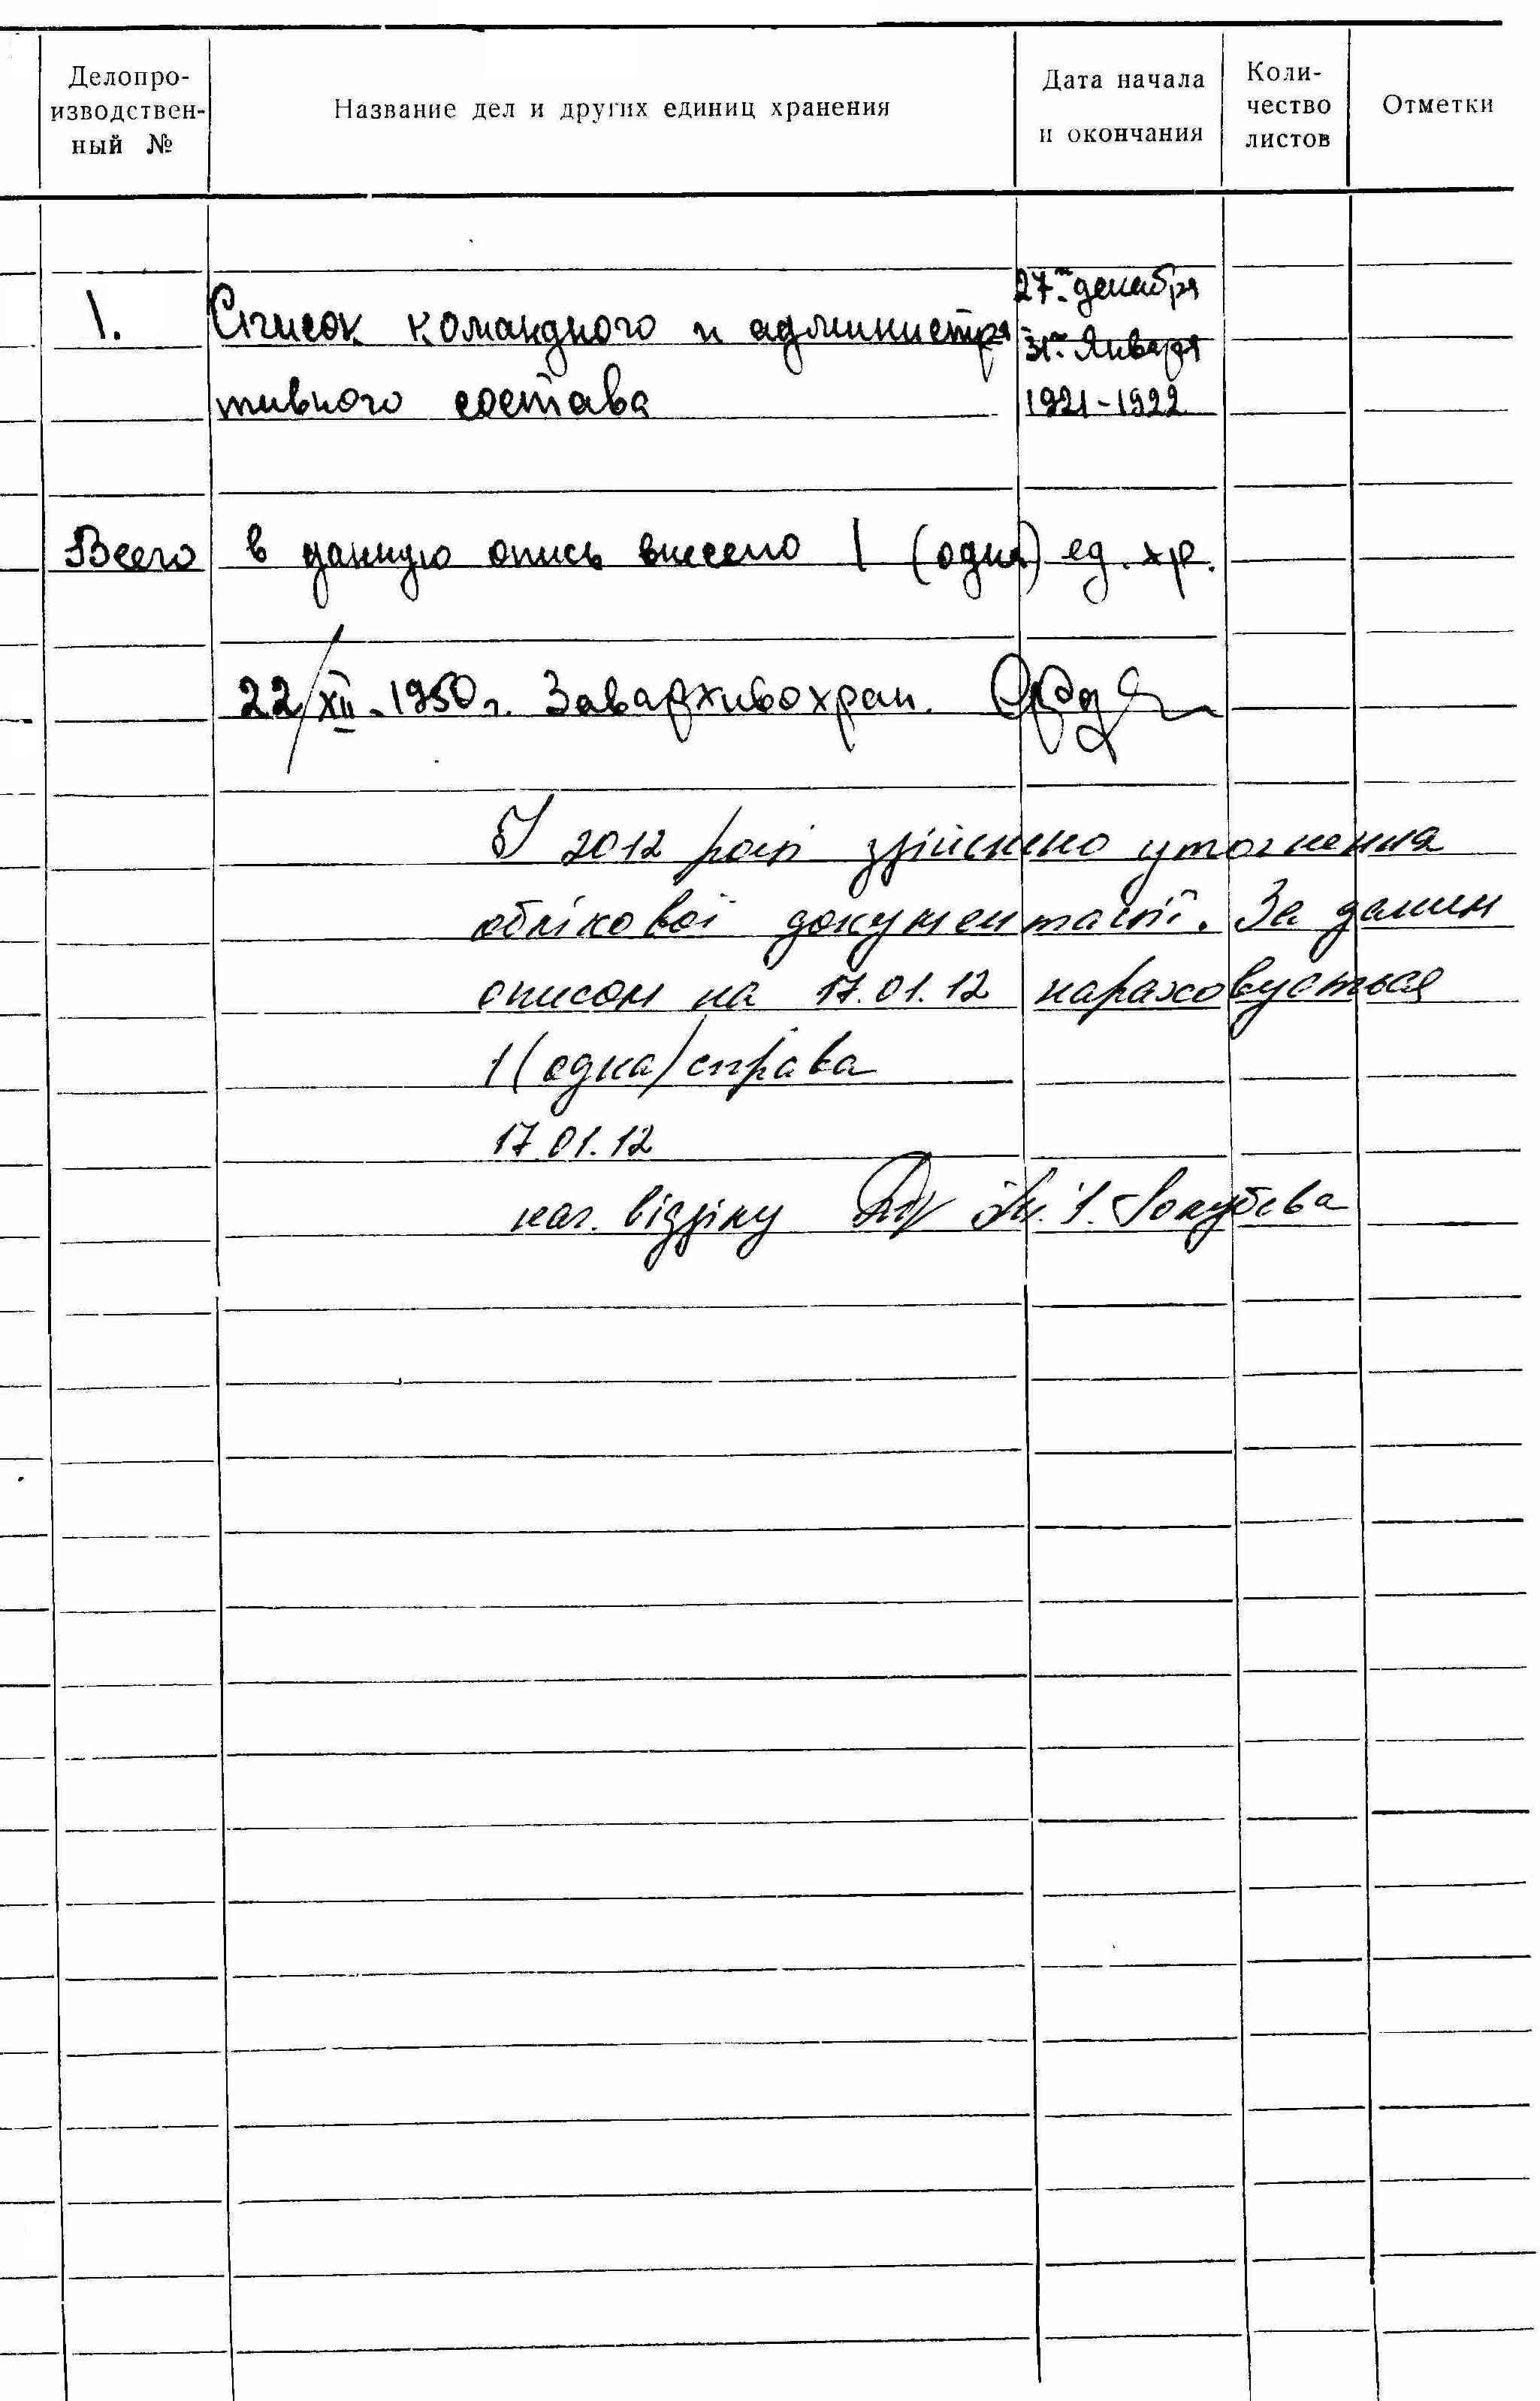 Делопро-
изводствен-
ный №
Название дел и других единиц хранения
Дата начала
и окончания
Коли-
чество
листов
Отметки
1. Список командного и администра
тивного состава
27го декабря
31го Января
1921-1922
Всего в данную опись внесено 1 (одна) ед. хр.
22/XII-1950г. Завархивохран.
У 2012 році здійснено уточнення
облікової документації. За даним
описом на 17.01.12 нараховується
1 (одна) справа
17.01.12
нач. відділу